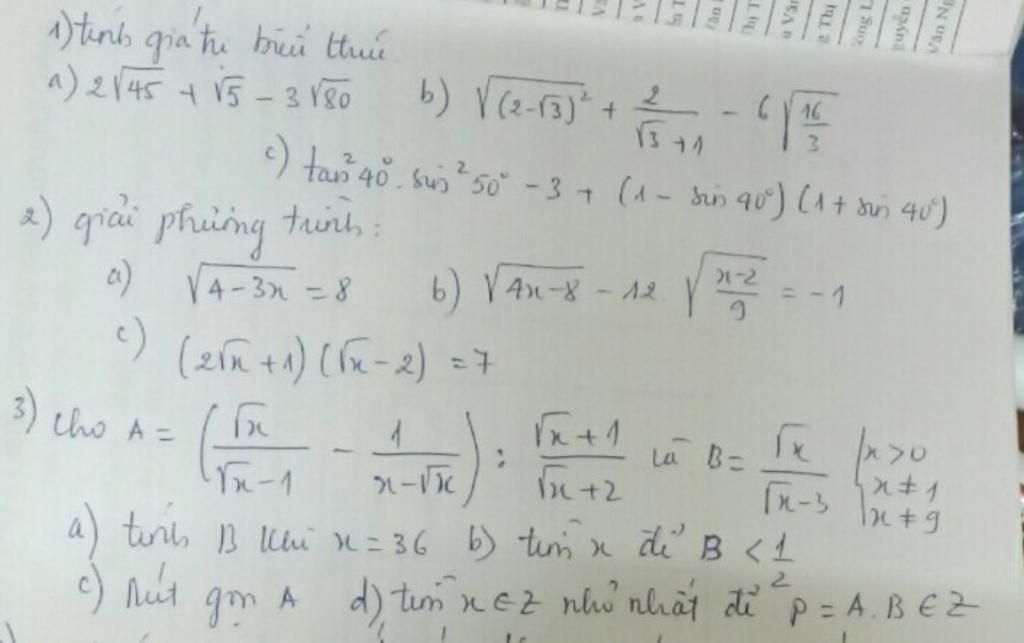 1) tính giá trị biểu thức
a) 2√45 + √5 - 3√80 b) √(2-√3)² + 2/(√3+1) - 6√(16/3)
c) tan²40°. sin²50° - 3 + (1 - sin 40°)(1 + sin 40°)
2) giải phương trình:
a) √(4-3x) = 8 b) √(4x-8) - 12 √((x-2)/9) = -1
c) (2√x + 1)(√x - 2) = 7
3) Cho A = (√x/(√x-1) - 1/(x-√x)) : (√x+1)/(√x+2) và B = √x/(√x-3) { x>0 x≠1 x≠9
a) tính B khi x = 36 b) tìm x để B < 1/2
c) Rút gọn A d) tìm x ∈ Z nhỏ nhất để P = A.B ∈ Z